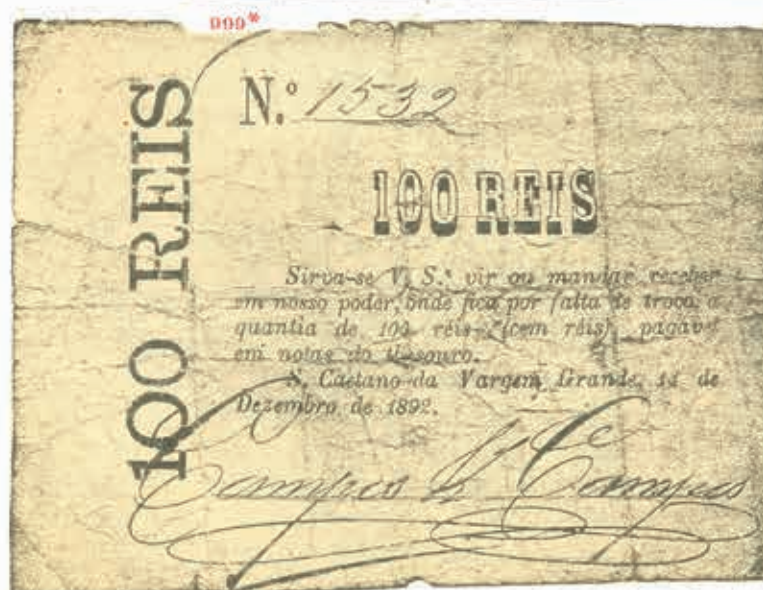 999*
N.º 1532
100 REIS
100 REIS
Sirva-se V. S.ª vir ou mandar receber
em nosso poder, onde fica por falta de troco, a
quantia de 100 réis (cem réis), pagavel
em notas do thesouro.
S. Caetano da Vargem Grande, 14 de
Dezembro de 1892.
Campos & Campos